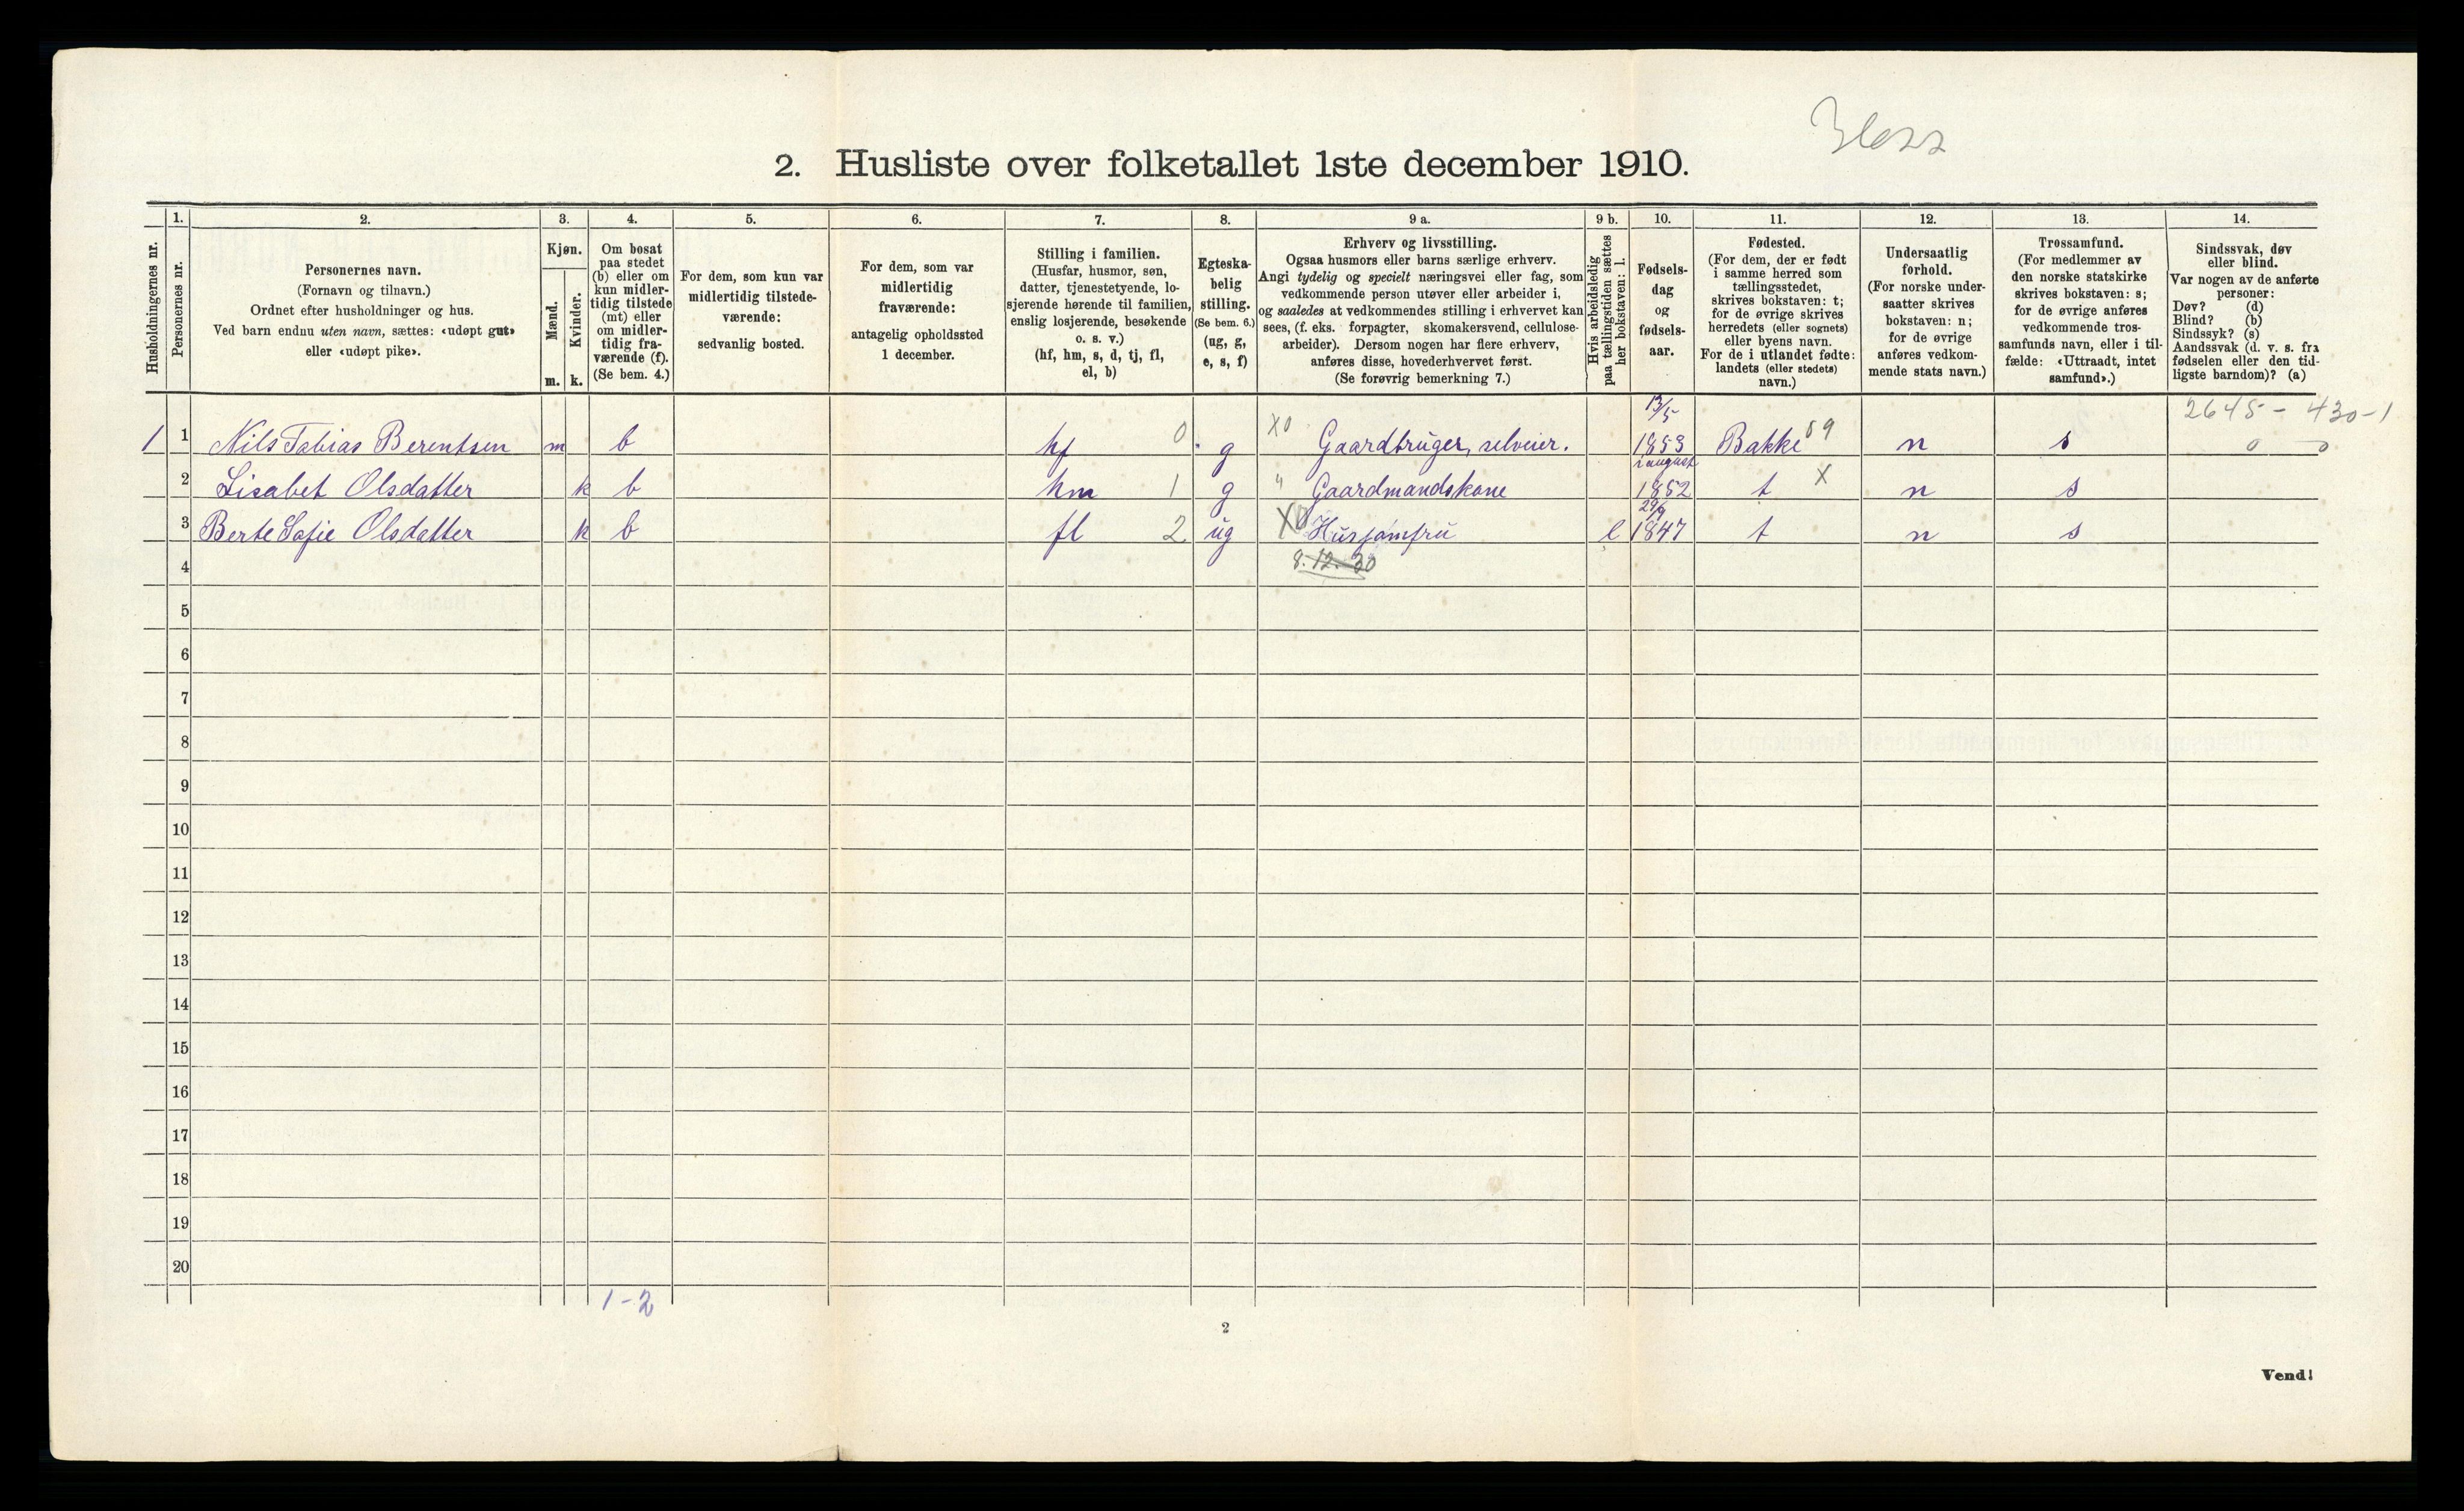 2. Husliste over folketallet 1ste december 1910.
Husholdningernes nr.
1.
Personernes nr.
2.
Personernes navn.
(Fornavn og tilnavn.)
Ordnet efter husholdninger og hus.
Ved barn endnu uten navn, sættes: «udøpt gut»
eller «udøpt pike».
3.
Kjøn.
Mænd.
Kvinder.
m. k.
4.
Om bosat
paa stedet
(b) eller om
kun midler-
tidig tilstede
(mt) eller
om midler-
tidig fra-
værende (f).
(Se bem. 4.)
5.
For dem, som kun var
midlertidig tilstede-
værende:
sedvanlig bosted.
6.
For dem, som var
midlertidig
fraværende:
antagelig opholdssted
1 december.
7.
Stilling i familien.
(Husfar, husmor, søn,
datter, tjenestetyende, lo-
sjerende hørende til familien,
enslig losjerende, besøkende
o. s. v.)
(hf, hm, s, d, tj, fl,
el, b)
8.
Egteska-
belig
stilling.
(Se bem. 6.)
(ug, g,
e, s, f)
9 a.
Erhverv og livsstilling.
Ogsaa husmors eller barns særlige erhverv.
Angi tydelig og specielt næringsvei eller fag, som
vedkommende person utøver eller arbeider i,
og saaledes at vedkommendes stilling i erhvervet kan
sees, (f. eks. forpagter, skomakersvend, cellulose-
arbeider). Dersom nogen har flere erhverv,
anføres disse, hovederhvervet først.
(Se forøvrig bemerkning 7.)
9 b.
Hvis arbeidsledig
paa tællingstiden sættes
her bokstaven: l.
10.
Fødsels-
dag
og
fødsels-
aar.
11.
Fødested.
(For dem, der er født
i samme herred som
tællingsstedet,
skrives bokstaven: t;
for de øvrige skrives
herredets (eller sognets)
eller byens navn.
For de i utlandet fødte:
landets (eller stedets)
navn.)
12.
Undersaatlig
forhold.
(For norske under-
saatter skrives
bokstaven: n;
for de øvrige
anføres vedkom-
mende stats navn.)
13.
Trossamfund.
(For medlemmer av
den norske statskirke
skrives bokstaven: s;
for de øvrige anføres
vedkommende tros-
samfunds navn, eller i til-
fælde: «Uttraadt, intet
samfund».)
14.
Sindssvak, døv
eller blind.
Var nogen av de anførte
personer:
Døv? (d)
Blind? (b)
Sindssyk? (s)
Aandssvak (d. v. s. fra
fødselen eller den tid-
ligste barndom)? (a)
13/5 2645 - 430-1
1 1 Nils Tobias Berentsen m b hf 0 g X0 Gaardbruger, selveier. 1853 Bakke 59 n s 0 0
2 august
2 Lisabet Olsdatter k b hm 1 g " Gaardmandskone 1852 t X n s
29/9
3 Berte Sofie Olsdatter k b fl 2 ug X0 Husjomfru l 1847 t n s
4 8.12.30
5
6
7
8
9
10
11
12
13
14
15
16
17
18
19
20
1-2
2
Vend!